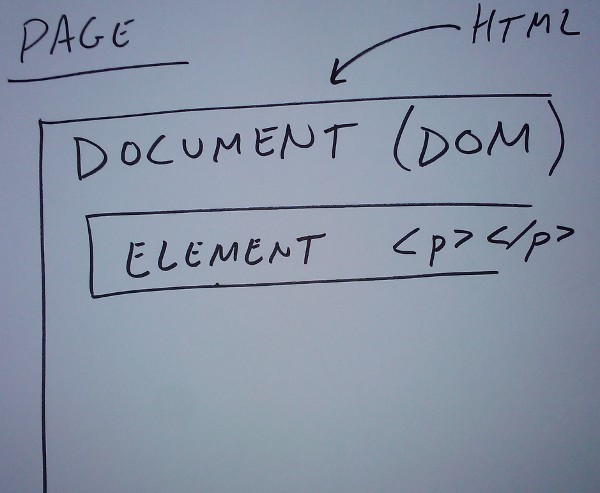 PAGE
HTML
DOCUMENT (DOM)
ELEMENT <p></p>